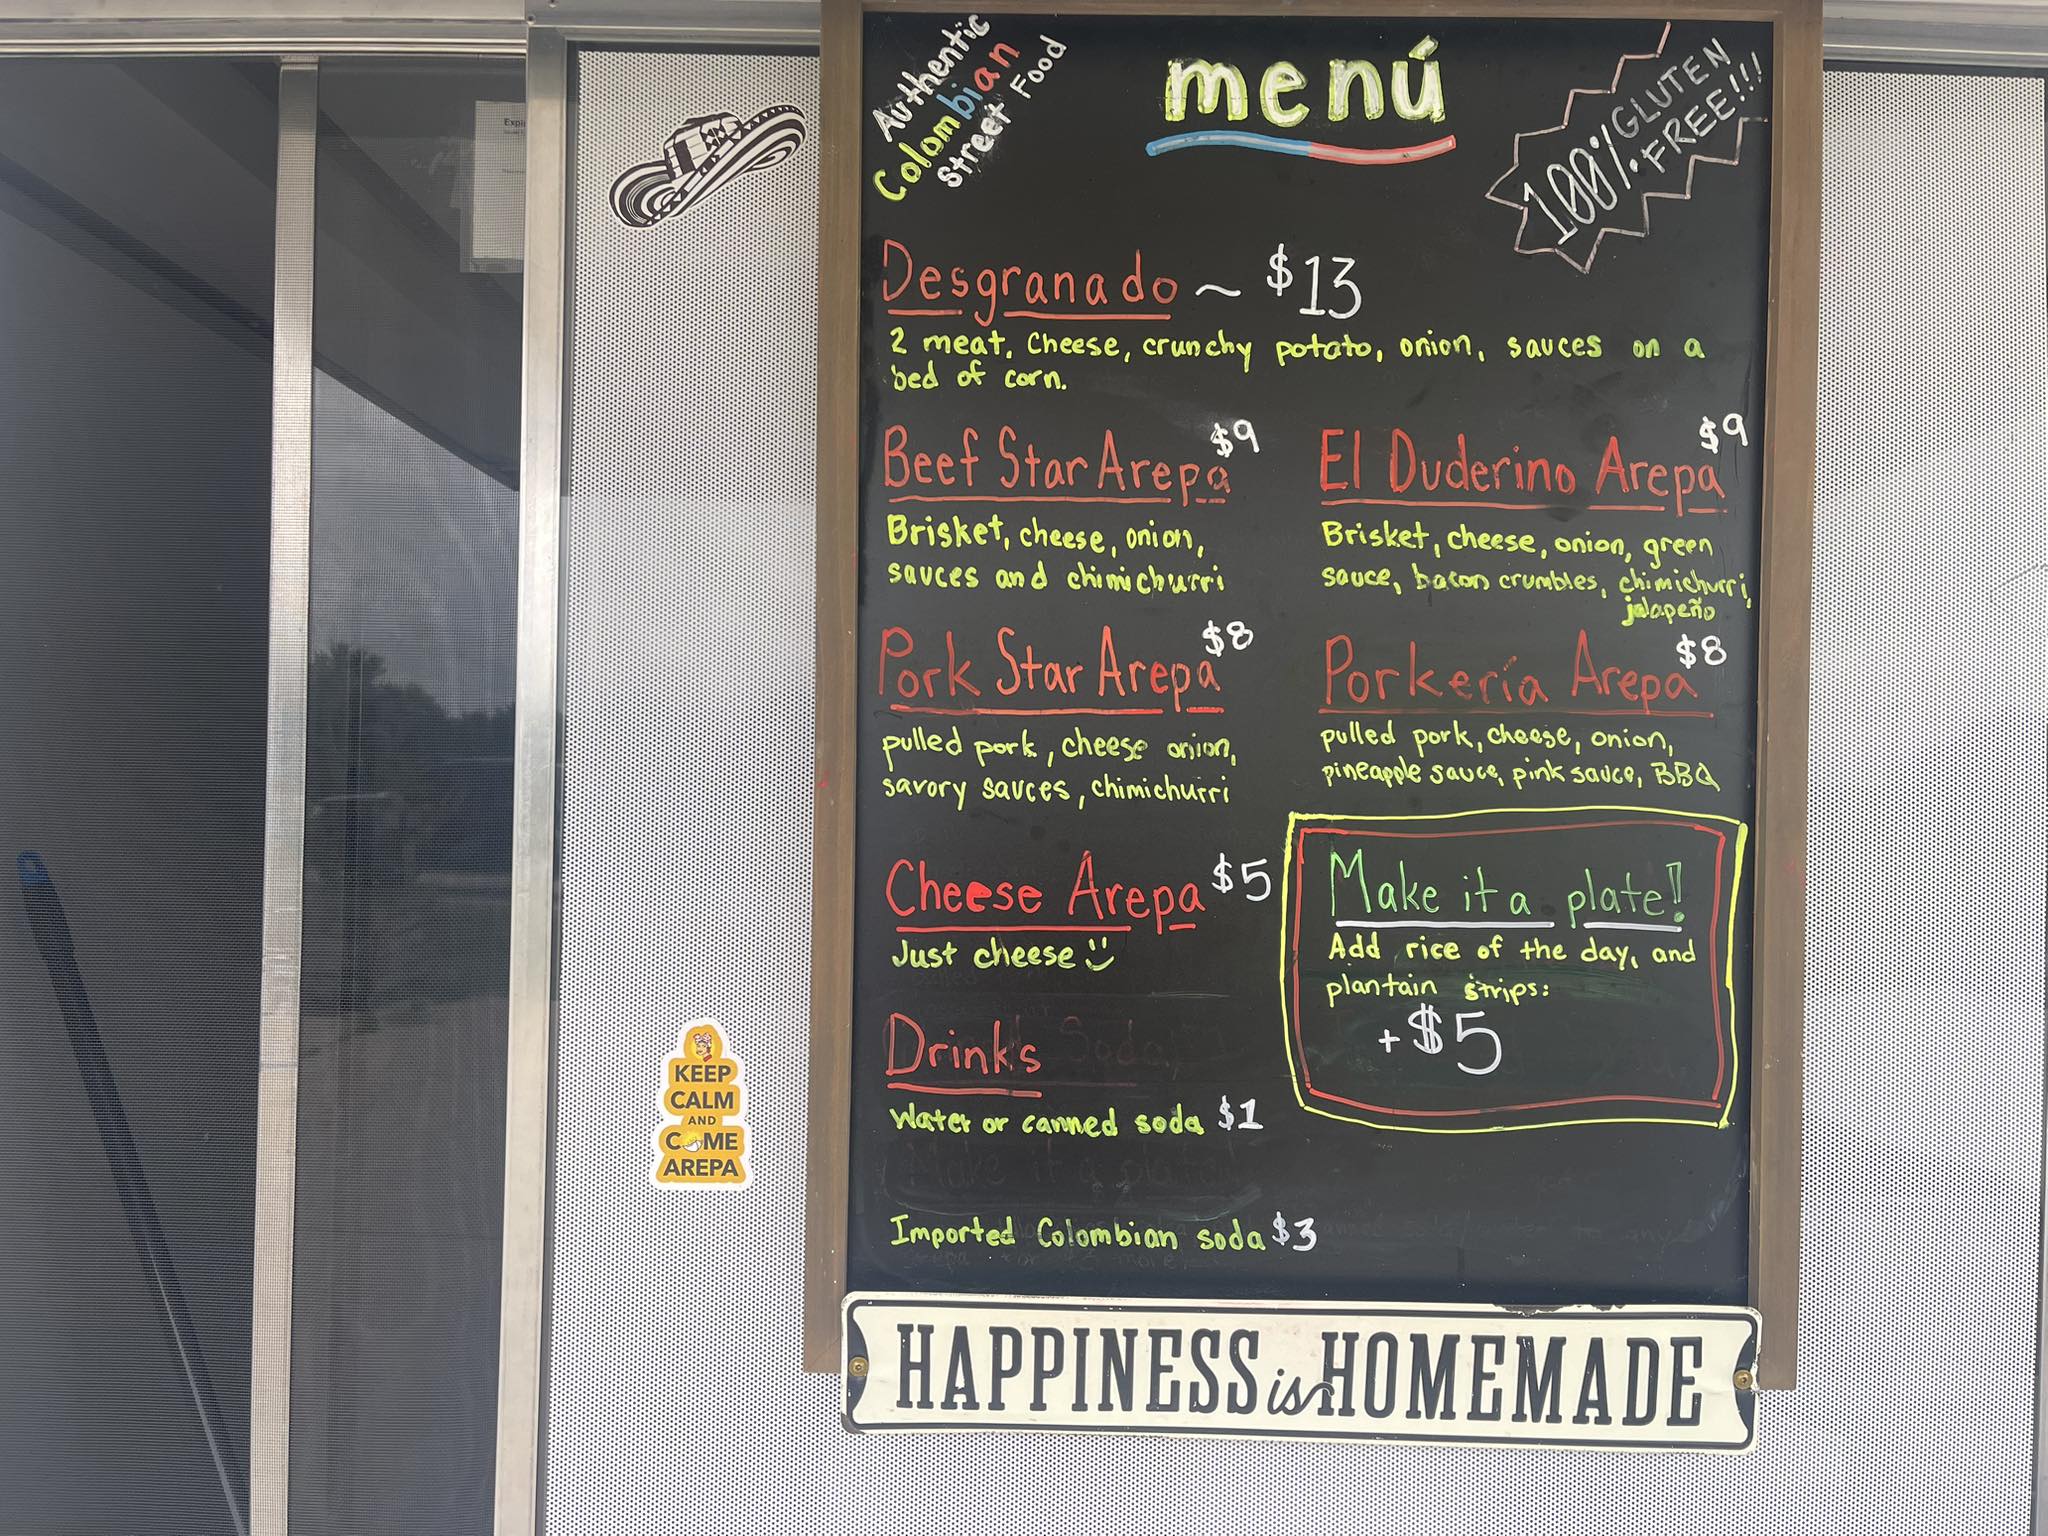 Authentic
Colombian
Street Food
menú
100% GLUTEN
FREE!!!
Desgranado ~ $13
2 meat, Cheese, crunchy potato, onion, sauces on a
bed of corn.
Beef Star Arepa $9
Brisket, cheese, onion,
sauces and chimichurri
El Duderino Arepa $9
Brisket, cheese, onion, green
sauce, bacon crumbles, chimichurri,
jalapeño
Pork Star Arepa $8
pulled pork, cheese onion,
savory sauces, chimichurri
Porkería Arepa $8
pulled pork, cheese, onion,
pineapple sauce, pink sauce, BBQ
Cheese Arepa $5
Just cheese
Make it a plate!
Add rice of the day, and
plantain strips:
+ $5
Drinks
Water or canned soda $1
Imported Colombian soda $3
HAPPINESS is HOMEMADE
KEEP
CALM
AND
COME
AREPA